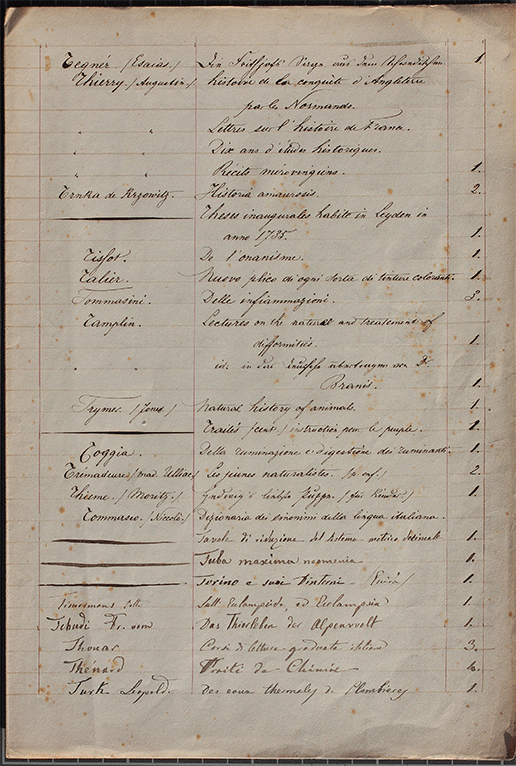 Tegnér (Esaias) Die Frithjofs 1.
Thierry (Augustin) histoire de la conquête d'Angleterre
par les Normands.
" " Lettres sur l'histoire de France.
" " Dix ans d'études historiques.
" " Récits merovingiens. 1.
Trnka de Krzowitz. Historia amauroseis. 2.
Theses inaugurales habit in Leyden in
anno 1735. 1.
Tissot. De l'onanisme. 1.
Talier. Nuovo plico di ogni sorta di tinture coloranti. 1.
Tommasini. Delle infiammazioni. 3.
Tamplin. Lectures on the nature and treatement of
difformities. 1.
" id: in das deutsche übertragen von Dr
Branis. 1.
Trymer (Jones) Natural history of animals. 1.
Traités (cent) instruction pour le peuple. 1.
Toggia. Della ruminazione e digestione dei ruminanti. 1.
Trémadeure (mad. Ulliac) Les jeunes naturalistes. 2
Thieme (Moritz) (für Kinder) 1.
Tommaseo (Niccolò) Dizionario dei sinonimi della lingua italiana.
Tavole di riduzione del sistema metrico decimale 1.
Tuba maxima neomenia 1.
Torino e suoi dintorni 1.
Sull' Eclampsia 1.
Tschudi Fr. von Das Thierleben der Alpenwelt 1.
Thouar Corso di letture graduate italiane 3.
Thénard Traité de Chimie
Turk Leopold. Des eaux thermales de Plombieres 1.